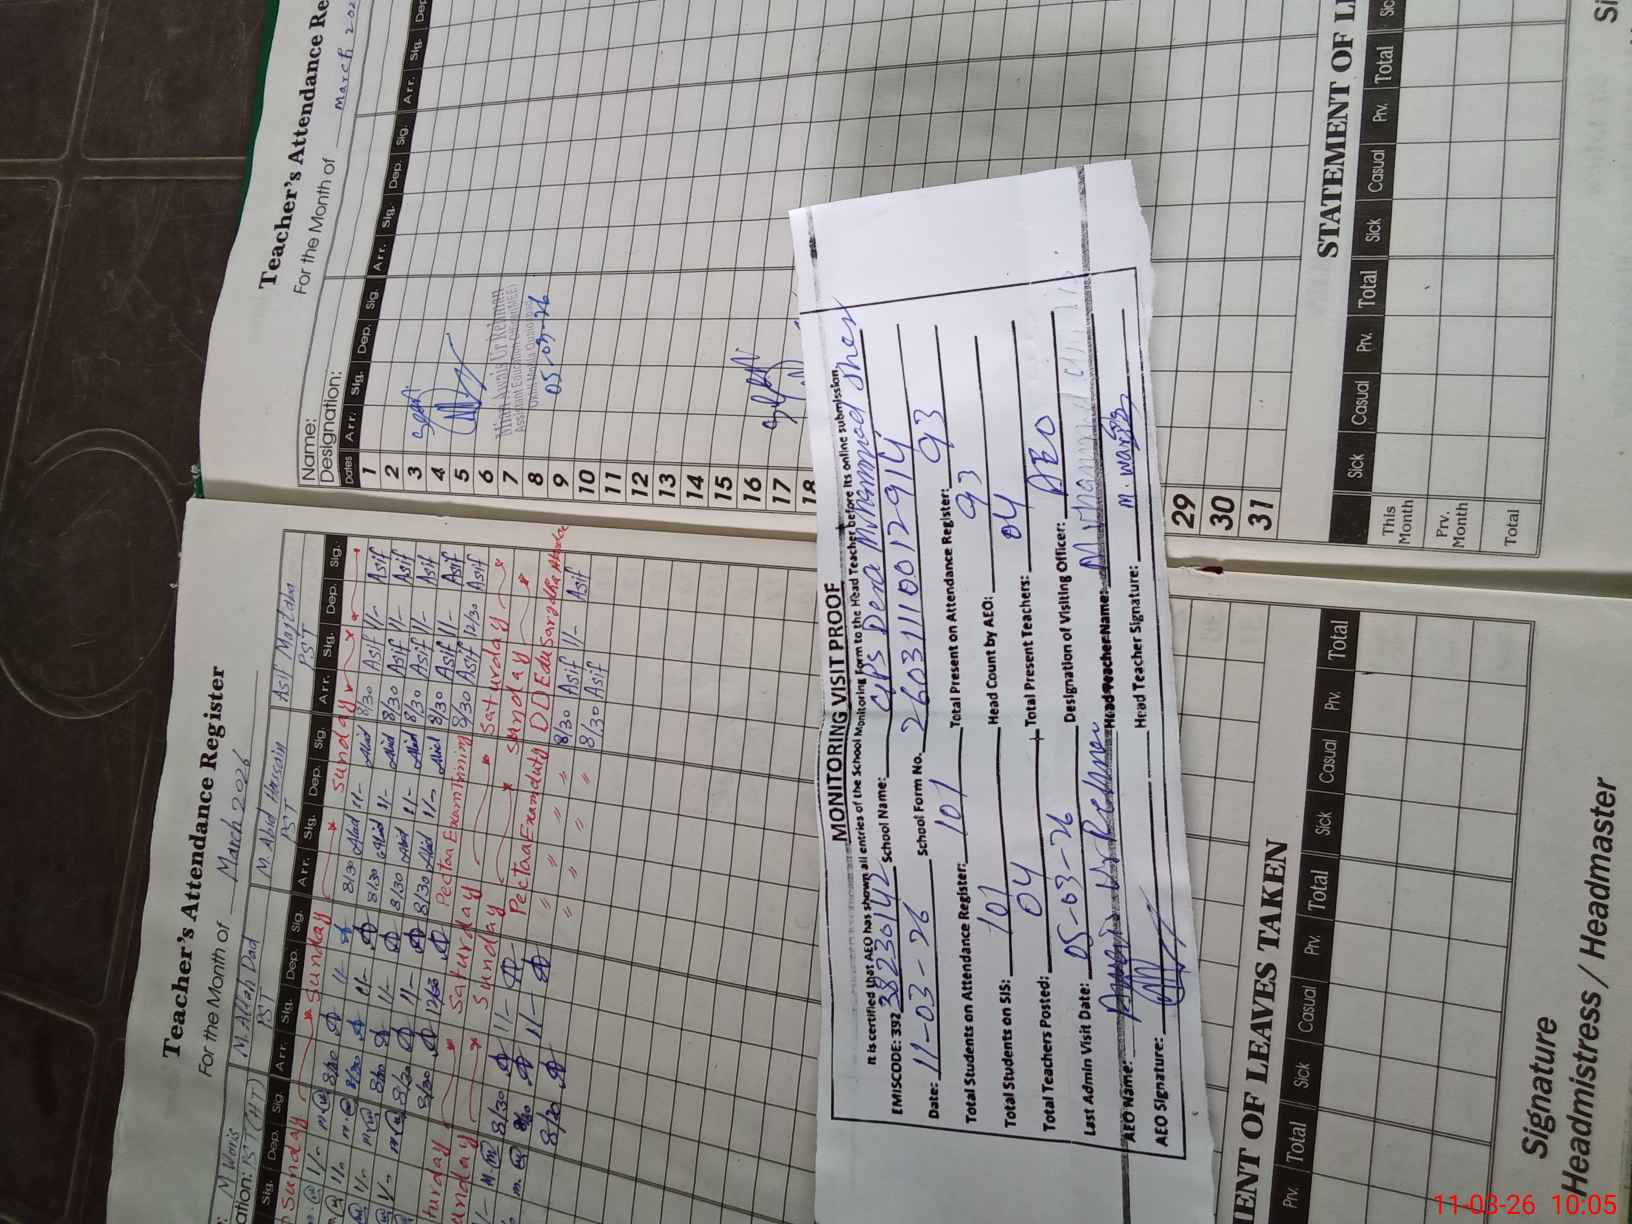 Teacher's Attendance Register
For the Month of March 2026
M. Waris M. Allah Dad M. Abid Hussain Asif Mujtaba
PST (HT) PST PST PST
Sig. Dep. Sig. Arr. Sig. Dep. Sig. Arr. Sig. Dep. Sig. Arr. Sig. Dep. Sig.
Sunday Sunday Sunday
8/30 11/- 8/30 Abid 11/- Abid 8/30 Asif 11/- Asif
8/30 11/- 8/30 Abid 11/- Abid 8/30 Asif 11/- Asif
8/30 11/- 8/30 Abid 11/- Abid 8/30 Asif 11/- Asif
8/30 11/- 8/30 Abid 11/- Abid 8/30 Asif 11/- Asif
8/30 12/30 Pectaa Exam Training 8/30 Asif 12/30 Asif
Saturday Saturday
Sunday Sunday
8/30 11/- Pectaa Exam duty DDEdu
8/30 11/- " " " " 8/30 Asif 11/- Asif
8/30 " " " " 8/30 Asif
Teacher's Attendance Re
For the Month of March 202
Name:
Designation:
Dates Arr. Sig. Dep. Sig. Arr. Sig. Dep. Sig. Arr. Sig. Dep
1
2
3
4
5
6
7
8
9
10
11
12
13
14
15
16
17
18
Assistant Education Officer
05-03-26
MONITORING VISIT PROOF
It is certified that AEO has shown all entries of the School Monitoring Form to the Head Teacher before its online submission.
EMISCODE: 392 38230142 School Name: GPS Dera Muhammad Sher
Date: 11-03-26 School Form No. 2603111001 2914
Total Students on Attendance Register: 101 Total Present on Attendance Register: 93
Total Students on SIS: 101 Head Count by AEO: 93
Total Teachers Posted: 04 Total Present Teachers: 04
Last Admin Visit Date: 05-03-26 Designation of Visiting Officer: AEO
AEO Name: Ur Rehman Head Teacher Name:
AEO Signature: Head Teacher Signature: M. Waris
29
30
31
ENT OF LEAVES TAKEN
Prv. Total Sick Casual Prv. Total Sick Casual Prv. Total
Signature
Headmistress / Headmaster
STATEMENT OF L
Sick Casual Prv. Total Sick Casual Prv. Total Sic
This Month
Prv. Month
Total
Si
11-03-26 10:05